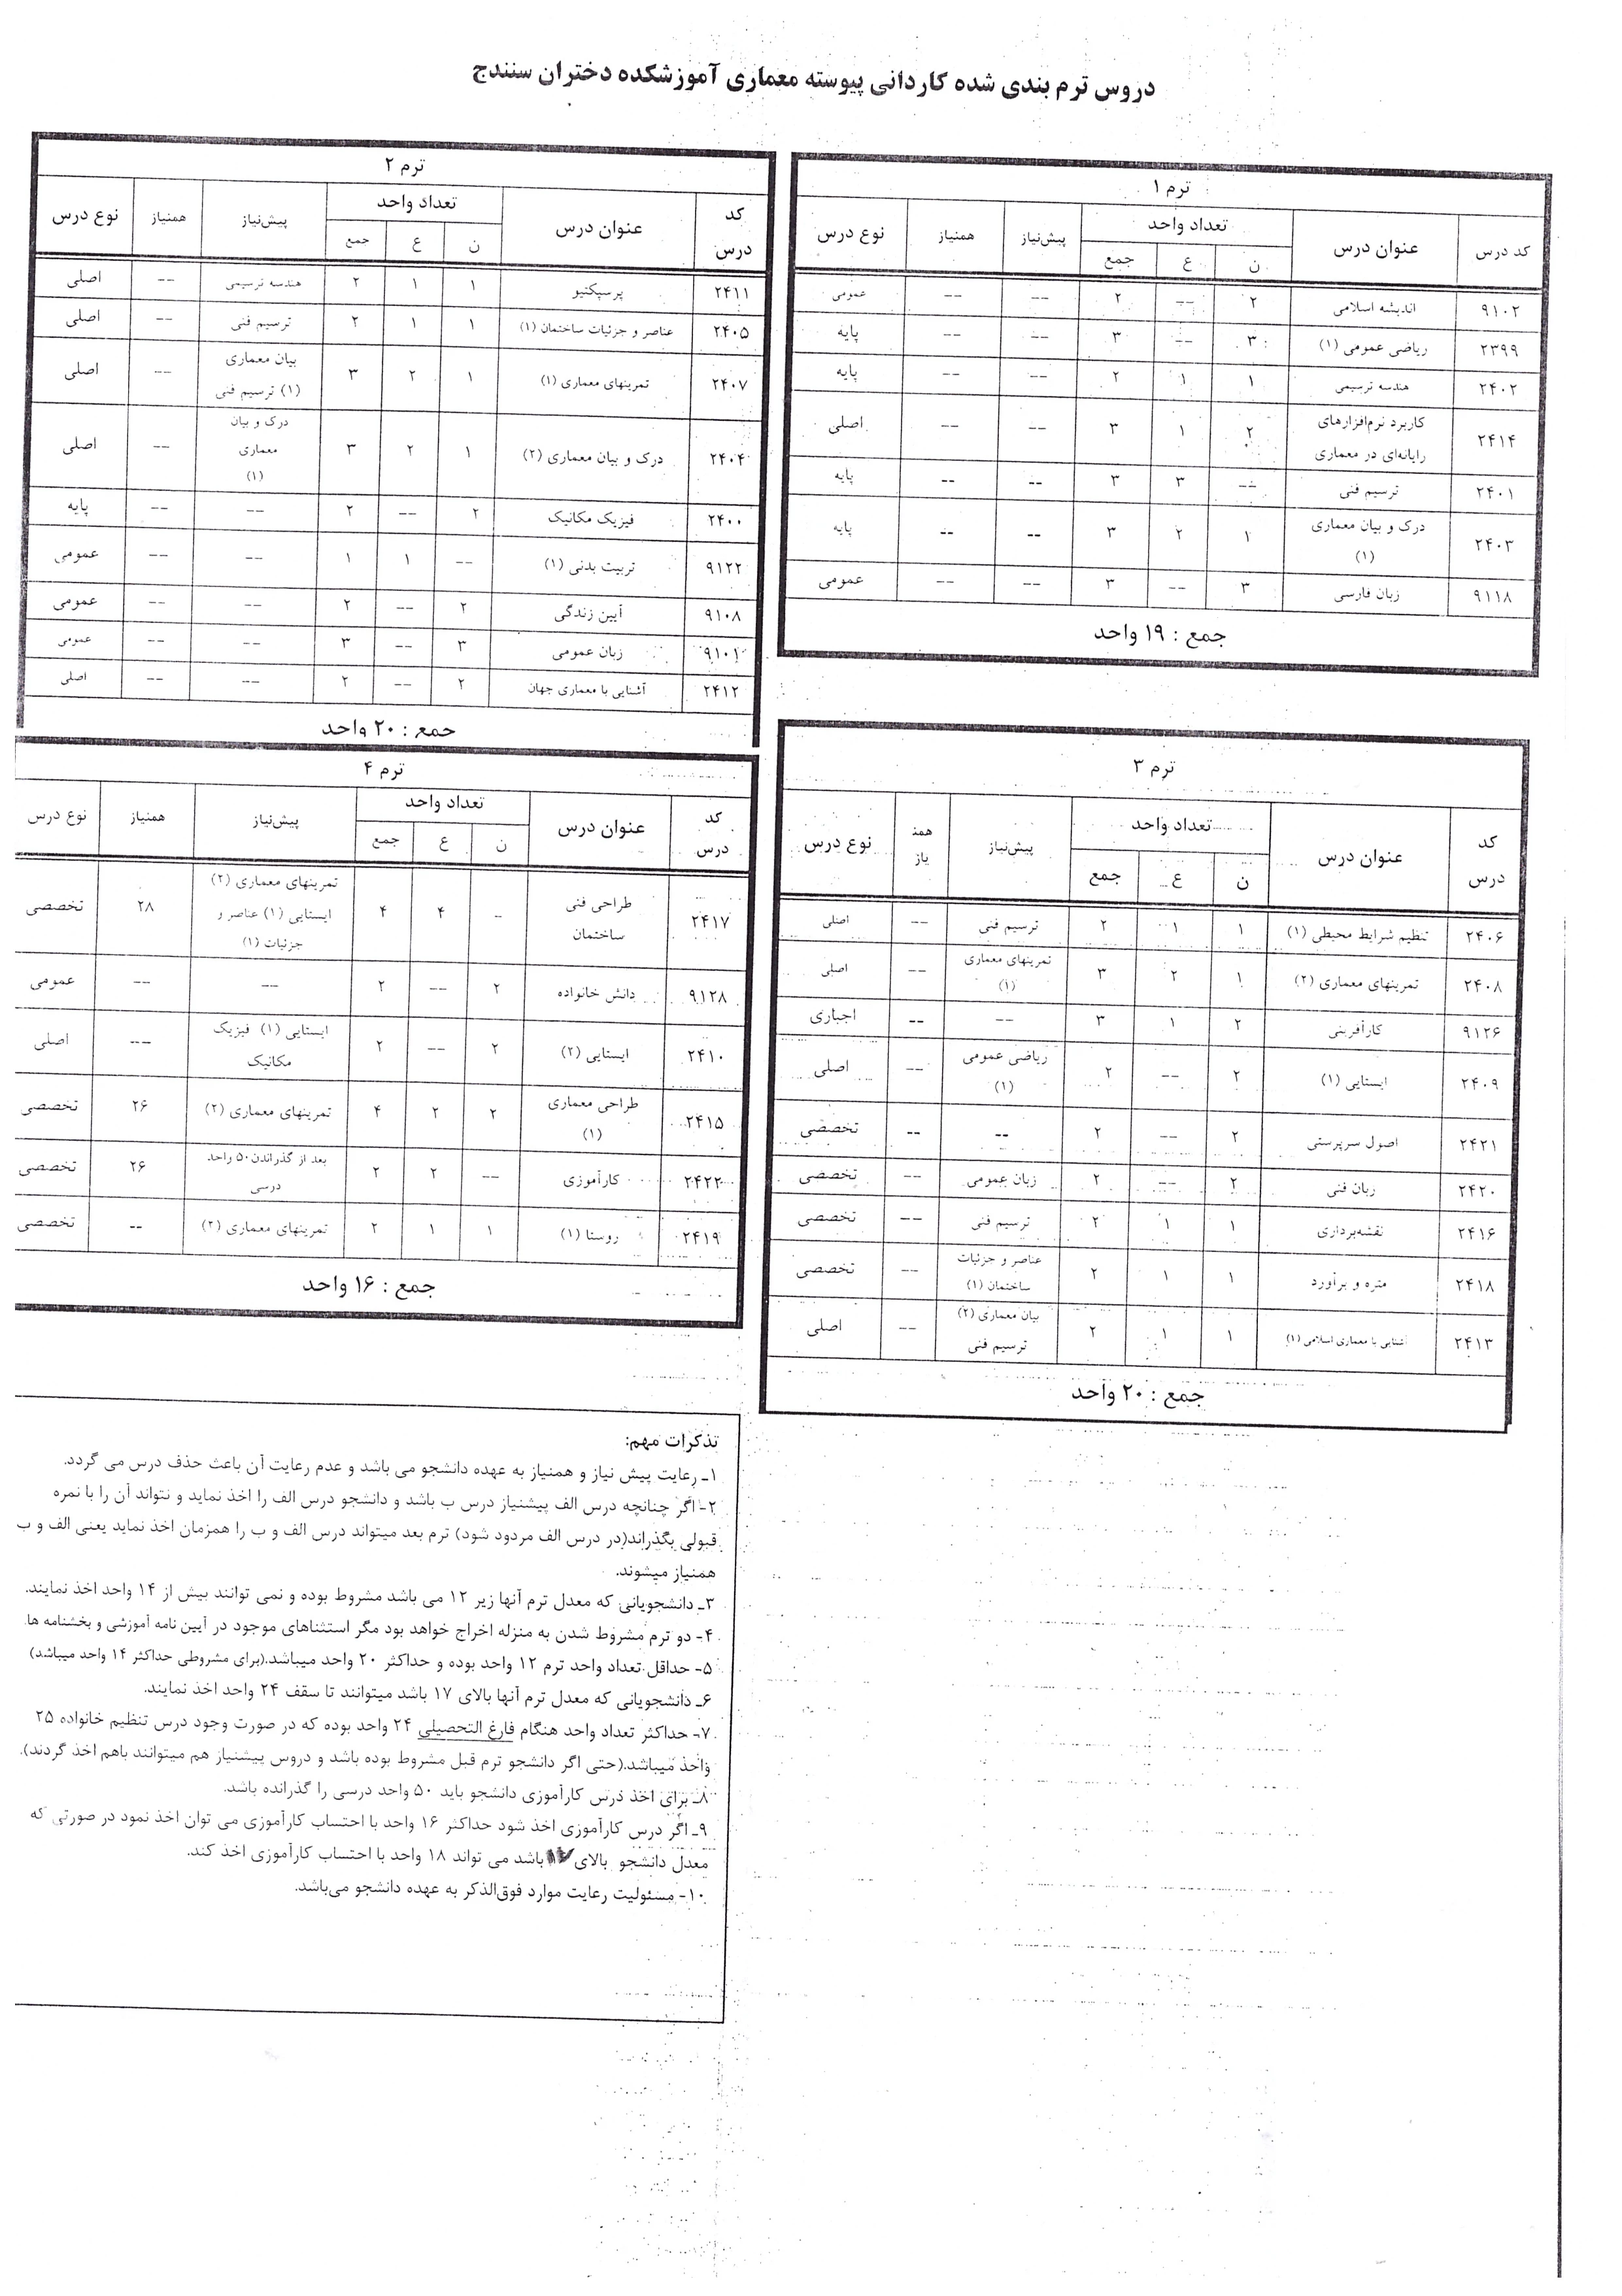 دروس ترم بندی شده کاردانی پیوسته معماری آموزشکده دختران سنندج
ترم ۱
کد درس عنوان درس تعداد واحد پیش‌نیاز همنیاز نوع درس
ن ع جمع
۹۱۰۲ اندیشه اسلامی ۲ -- ۲ -- -- عمومی
۲۳۹۹ ریاضی عمومی (۱) ۳ -- ۳ -- -- پایه
۲۴۰۲ هندسه ترسیمی ۱ ۱ ۲ -- -- پایه
۲۴۱۴ کاربرد نرم‌افزارهای ۲ ۱ ۳ -- -- اصلی
رایانه‌ای در معماری
۲۴۰۱ ترسیم فنی -- ۳ ۳ -- -- پایه
۲۴۰۳ درک و بیان معماری ۱ ۲ ۳ -- -- پایه
(۱)
۹۱۱۸ زبان فارسی ۳ -- ۳ -- -- عمومی
جمع : ۱۹ واحد
ترم ۲
کد عنوان درس تعداد واحد پیش‌نیاز همنیاز نوع درس
درس ن ع جمع
۲۴۱۱ پرسپکتیو ۱ ۱ ۲ هندسه ترسیمی -- اصلی
۲۴۰۵ عناصر و جزئیات ساختمان (۱) ۱ ۱ ۲ ترسیم فنی -- اصلی
۲۴۰۷ تمرینهای معماری (۱) ۱ ۲ ۳ بیان معماری -- اصلی
(۱) ترسیم فنی
۲۴۰۴ درک و بیان معماری (۲) ۱ ۲ ۳ درک و بیان -- اصلی
معماری
(۱)
۲۴۰۰ فیزیک مکانیک ۲ -- ۲ -- -- پایه
۹۱۲۲ تربیت بدنی (۱) -- ۱ ۱ -- -- عمومی
۹۱۰۸ آیین زندگی ۲ -- ۲ -- -- عمومی
۹۱۰۱ زبان عمومی ۳ -- ۳ -- -- عمومی
۲۴۱۲ آشنایی با معماری جهان ۲ -- ۲ -- -- اصلی
جمع : ۲۰ واحد
ترم ۳
کد عنوان درس تعداد واحد پیش‌نیاز همن نوع درس
درس ن ع جمع یاز
۲۴۰۶ تنظیم شرایط محیطی (۱) ۱ ۱ ۲ ترسیم فنی -- اصلی
۲۴۰۸ تمرینهای معماری (۲) ۱ ۲ ۳ تمرینهای معماری -- اصلی
(۱)
۹۱۲۶ کارآفرینی ۲ ۱ ۳ -- -- اجباری
۲۴۰۹ ایستایی (۱) ۲ -- ۲ ریاضی عمومی -- اصلی
(۱)
۲۴۲۱ اصول سرپرستی ۲ -- ۲ -- -- تخصصی
۲۴۲۰ زبان فنی ۲ -- ۲ زبان عمومی -- تخصصی
۲۴۱۶ نقشه‌برداری ۱ ۱ ۲ ترسیم فنی -- تخصصی
۲۴۱۸ متره و برآورد ۱ ۱ ۲ عناصر و جزئیات -- تخصصی
ساختمان (۱)
۲۴۱۳ آشنایی با معماری اسلامی (۱) ۱ ۱ ۲ بیان معماری (۲) -- اصلی
ترسیم فنی
جمع : ۲۰ واحد
ترم ۴
کد عنوان درس تعداد واحد پیش‌نیاز همنیاز نوع درس
درس ن ع جمع
۲۴۱۷ طراحی فنی -- ۴ ۴ تمرینهای معماری (۲) ۲۸ تخصصی
ساختمان ایستایی (۱) عناصر و
جزئیات (۱)
۹۱۲۸ دانش خانواده ۲ -- ۲ -- -- عمومی
۲۴۱۰ ایستایی (۲) ۲ -- ۲ ایستایی (۱) فیزیک --- اصلی
مکانیک
۲۴۱۵ طراحی معماری ۲ ۲ ۴ تمرینهای معماری (۲) ۲۶ تخصصی
(۱)
۲۴۲۲ کارآموزی -- ۲ ۲ بعد از گذراندن ۵۰ واحد ۲۶ تخصصی
درسی
۲۴۱۹ روستا (۱) ۱ ۱ ۲ تمرینهای معماری (۲) -- تخصصی
جمع : ۱۶ واحد
تذکرات مهم:
۱ـ رعایت پیش نیاز و همنیاز به عهده دانشجو می باشد و عدم رعایت آن باعث حذف درس می گردد.
۲-اگر چنانچه درس الف پیشنیاز درس ب باشد و دانشجو درس الف را اخذ نماید و نتواند آن را با نمره
قبولی بگذراند(در درس الف مردود شود) ترم بعد میتواند درس الف و ب را همزمان اخذ نماید یعنی الف و ب
همنیاز میشوند.
۳ـ دانشجویانی که معدل ترم آنها زیر ۱۲ می باشد مشروط بوده و نمی توانند بیش از ۱۴ واحد اخذ نمایند.
۴- دو ترم مشروط شدن به منزله اخراج خواهد بود مگر استثناهای موجود در آیین نامه آموزشی و بخشنامه ها.
۵- حداقل تعداد واحد ترم ۱۲ واحد بوده و حداکثر ۲۰ واحد میباشد.(برای مشروطی حداکثر ۱۴ واحد میباشد)
۶ـ دانشجویانی که معدل ترم آنها بالای ۱۷ باشد میتوانند تا سقف ۲۴ واحد اخذ نمایند.
۷- حداکثر تعداد واحد هنگام فارغ التحصیلی ۲۴ واحد بوده که در صورت وجود درس تنظیم خانواده ۲۵
واحد میباشد.(حتی اگر دانشجو ترم قبل مشروط بوده باشد و دروس پیشنیاز هم میتوانند باهم اخذ گردند).
۸ـ برای اخذ درس کارآموزی دانشجو باید ۵۰ واحد درسی را گذرانده باشد.
۹ـ اگر درس کارآموزی اخذ شود حداکثر ۱۶ واحد با احتساب کارآموزی می توان اخذ نمود در صورتی که
معدل دانشجو بالای باشد می تواند ۱۸ واحد با احتساب کارآموزی اخذ کند.
۱۰- مسئولیت رعایت موارد فوق‌الذکر به عهده دانشجو می‌باشد.